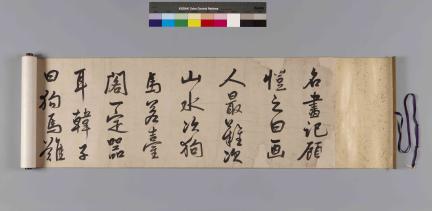 名畫記顧
愷之曰画
人最難次
山水次狗
馬若臺
閣一定器
耳韓子
曰狗馬難